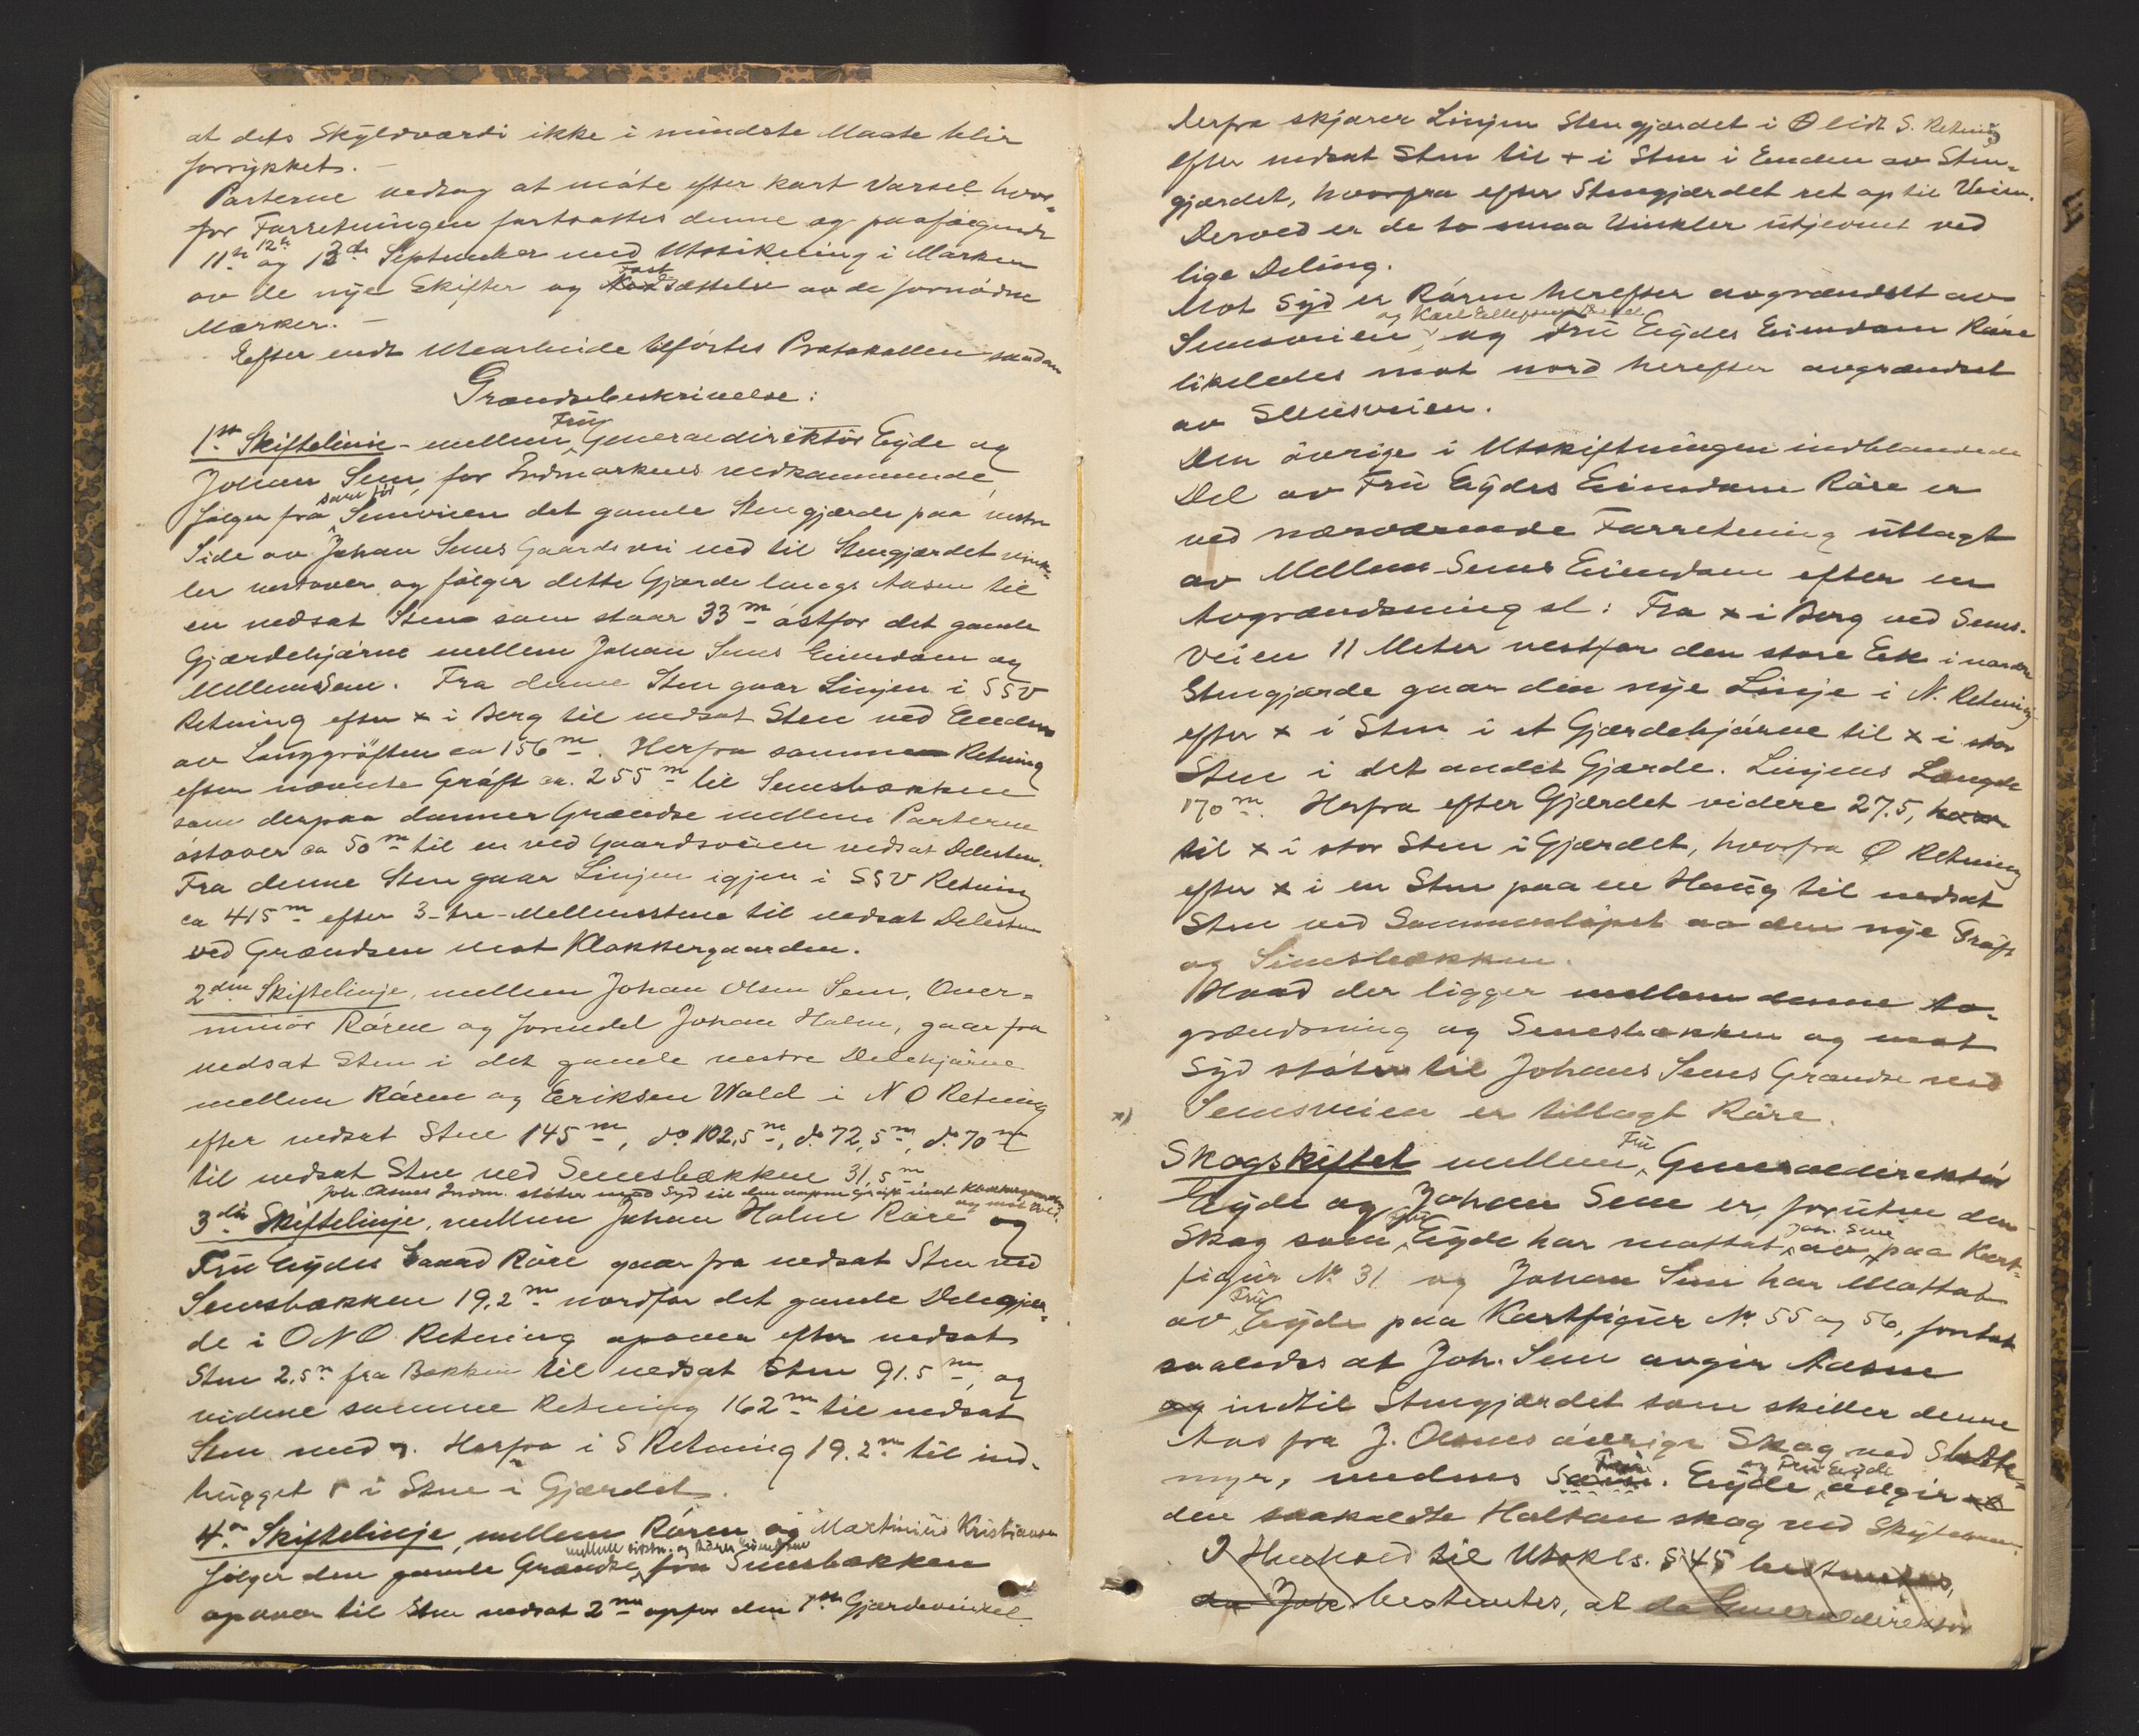 at dets Skyldværdi ikke i mindste Maate blir
forrykket. —
Parterne vedtog at møte efter kort Varsel hvor=
for Forretningen fortsattes denne og paafølgende
11te 12te og 13de September med Utstikning i Marken
av de nye Skifter og Fastsættelse av de fornødne
Mærker. —
Efter endt Utearbeide tilførtes Protokollen saadan
Grændsebeskrivelse:
1ste Skiftelinie - mellem Fru Generaldirektør Eyde og
Johan Sem, for Indmarkens vedkommende,
følger fra Semsveien som før det gamle Stengjærde paa vestre
Side av Johan Sems Gaardsvei ned til Stengjærdet vink=
ler vestover og følger dette Gjærde langs Aasen til
en nedsat Sten som staar 33 m østfor det gamle
Gjærdehjørne mellem Johan Sems Eiendom og
Mellemsem. Fra denne Sten gaar Linjen i SSV
Retning efter x i Berg til nedsat Sten ved Enden
av Langgrøften ca 156 m. Herfra samme Retning
efter nævnte Grøft ca. 255 m til Semsbækken
som derpaa danner Grændse mellem Parterne
østover ca 50 m til en ved Gaardsveien nedsat Delesten.
Fra denne Sten gaar Linjen igjen i SSV Retning
ca 415 m efter 3-tre-Mellemstene til nedsat Delesten
ved Grændsen mot Klokkergaarden.
2den Skiftelinje, mellem Johan Olsen Sem, Over=
minør Røren og formodel Johan Holm, gaar fra
nedsat Sten i det gamle vestre Delehjørne
mellem Røren og Eriksen Wold i NO Retning
efter nedsat Sten 145 m, do 102,5 m, do 72,5 m, do 70 m
til nedsat Sten ved Semsbækken 31,5 m
Joh. Olsens Indm. støter mod Syd til den aapne Grøft imot Klokkergaarden og mot Øvid.
3die Skiftelinje, mellem Johan Holm Røre og
Fru Eydes Gaard Røre gaar fra nedsat Sten ved
Semsbækken 19.2 m nordfor det gamle Delegjær=
de i ONO Retning opover efter nedsat
Sten 2.5 m fra Bækken til nedsat Sten 91.5 m, og
videre samme Retning 162 m til nedsat
Sten med . Herfra i S Retning 19.2 m til ind-
hugget i Sten i Gjærdet.
4de Skiftelinje, mellem Røren og Martinius Kristiansen
følger den gamle Grændse fra Semsbækken
opover til Sten nedsat 2 m opfor den 1ste Gjærdevinkel.
Derfra skjærer Linjen Stengjærdet i Ø lidt S. Retning
efter nedsat Sten til + i Sten i Enden av Sten=
gjærdet, hvorfra efter Stengjærdet ret op til Veien.
Derved er de to smaa Vinkler utjevnet ved
lige Deling.
Mot Syd er Røren herefter avgrændset av
Semsveien og Karl Ellefsens og Fru Eydes Eiendom Røre
likeledes mot nord herefter avgrændset
av Semsveien.
Den øvrige i Utskiftningen indblandede
Del av Fru Eydes Eiendom Røre er
ved nærværende Forretning utlagt
av Mellem-Sems Eiendom efter en
Avgrændsning sl: Fra x i Berg ved Sems-
veien 11 Meter vestfor den store Eek i nordre
Stengjærde gaar den nye Linje i N. Retning
efter x i Sten i et Gjærdehjørne til x i stor
Sten i det andet Gjærde. Linjens Længde
170 m. Herfra efter Gjærdet videre 27.5,
til x i stor Sten i Gjærdet, hvorfra Ø Retning
efter x i en Sten paa en Haug til nedsat
Sten ved Sammenløpet av den nye Grøft
og Semsbækken.
Hvad der ligger mellem denne Av-
grændsning og Semsbækken og mot
Syd støter til Johans Sems Grændse ved
x) Semsveien er tillagt Røre.
Skogskiftet mellem Fru Generaldirektør
Eyde og Johan Sem er, foruten den
Skog som Fru Eyde har mottat av Joh. Sem paa Kart-
figur No 31 og Johan Sem har Mottat
av Fru Eyde paa Kartfigur No 55 og 56, fortsat
saaledes at Joh. Sem avgir Aasen
og indtil Stengjærdet som skiller denne
Aas fra J. Olsens øvrige Skog ved Slette=
myr, medens Fru Eyde og Fru Eyde avgir
den saakaldte Holtan skog ved Skytebanen.
I Henhold til Utskls. § 45 bestemtes,
da Joh bestemtes, at da Generaldirektør